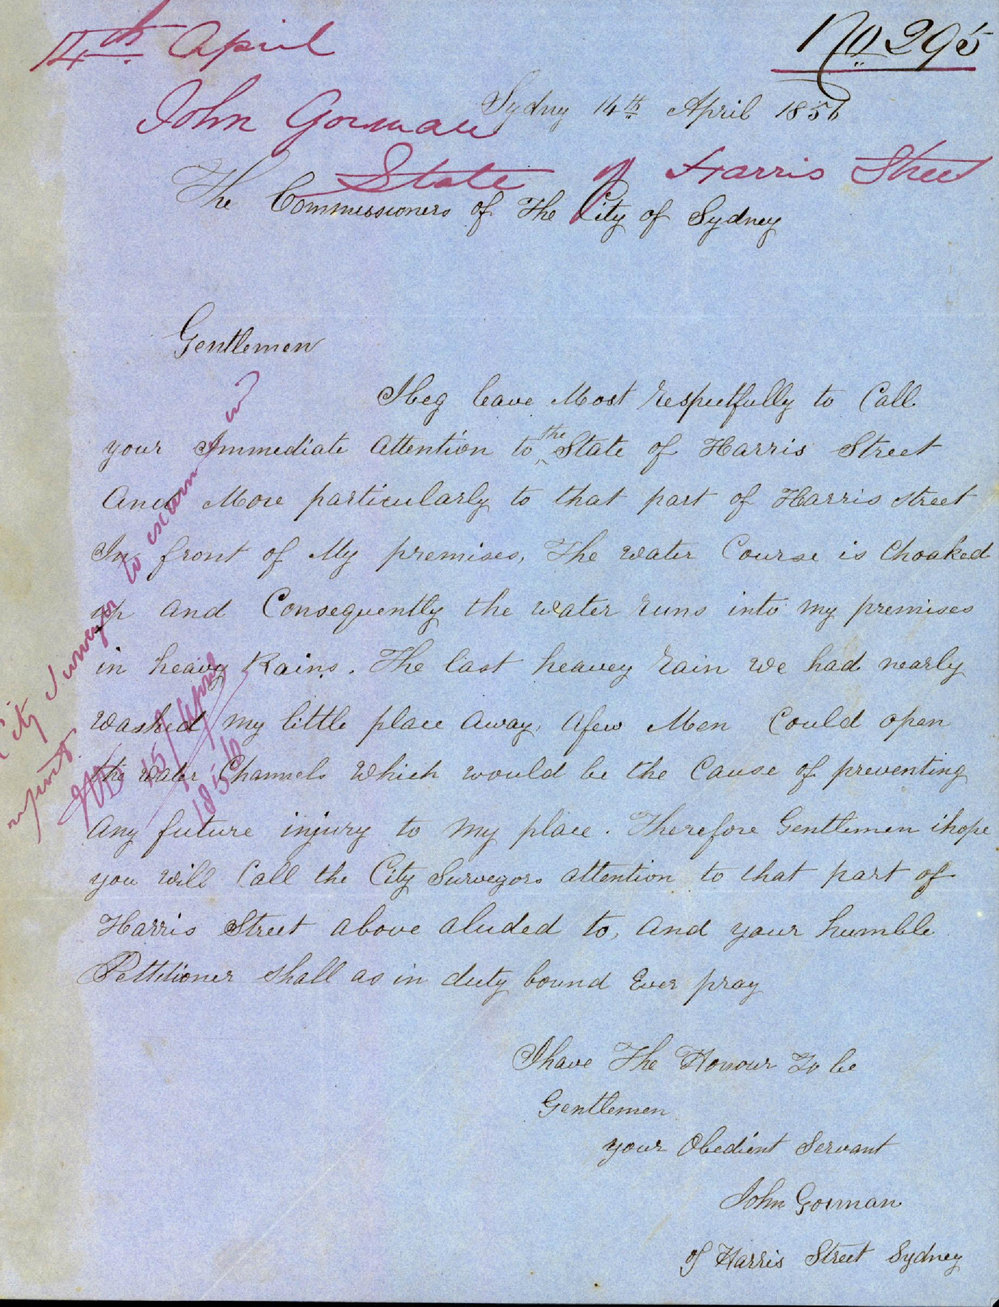 No 295
14th April
John Gorman
State of Harris Street
Sydny 14th April 1856
The Commissioners of The City of Sydney
Gentlemen
I beg leave Most respectfully to Call
your Immediate attention to the State of Harris Street
And More particularly to that part of Harris street
In front of My premises, The water Course is Choaked
up and Consequently the water runs into my premises
in heavy Rains. The last heavey rain we had nearly
washed my little place away, afew Men Could open
the water Channels which would be the Cause of preventing
any future injury to My place. Therefore Gentlemen ihope
you will Call the City Surveyors attention to that part of
Harris Street above aluded to, and your humble
Pettitioner shall as in duty bound Ever pray
I have The Honour To be
Gentlemen
your Obedient Servant
John Gorman
of Harris Street Sydney
City Surveyor to examine and
report
15/April
1856